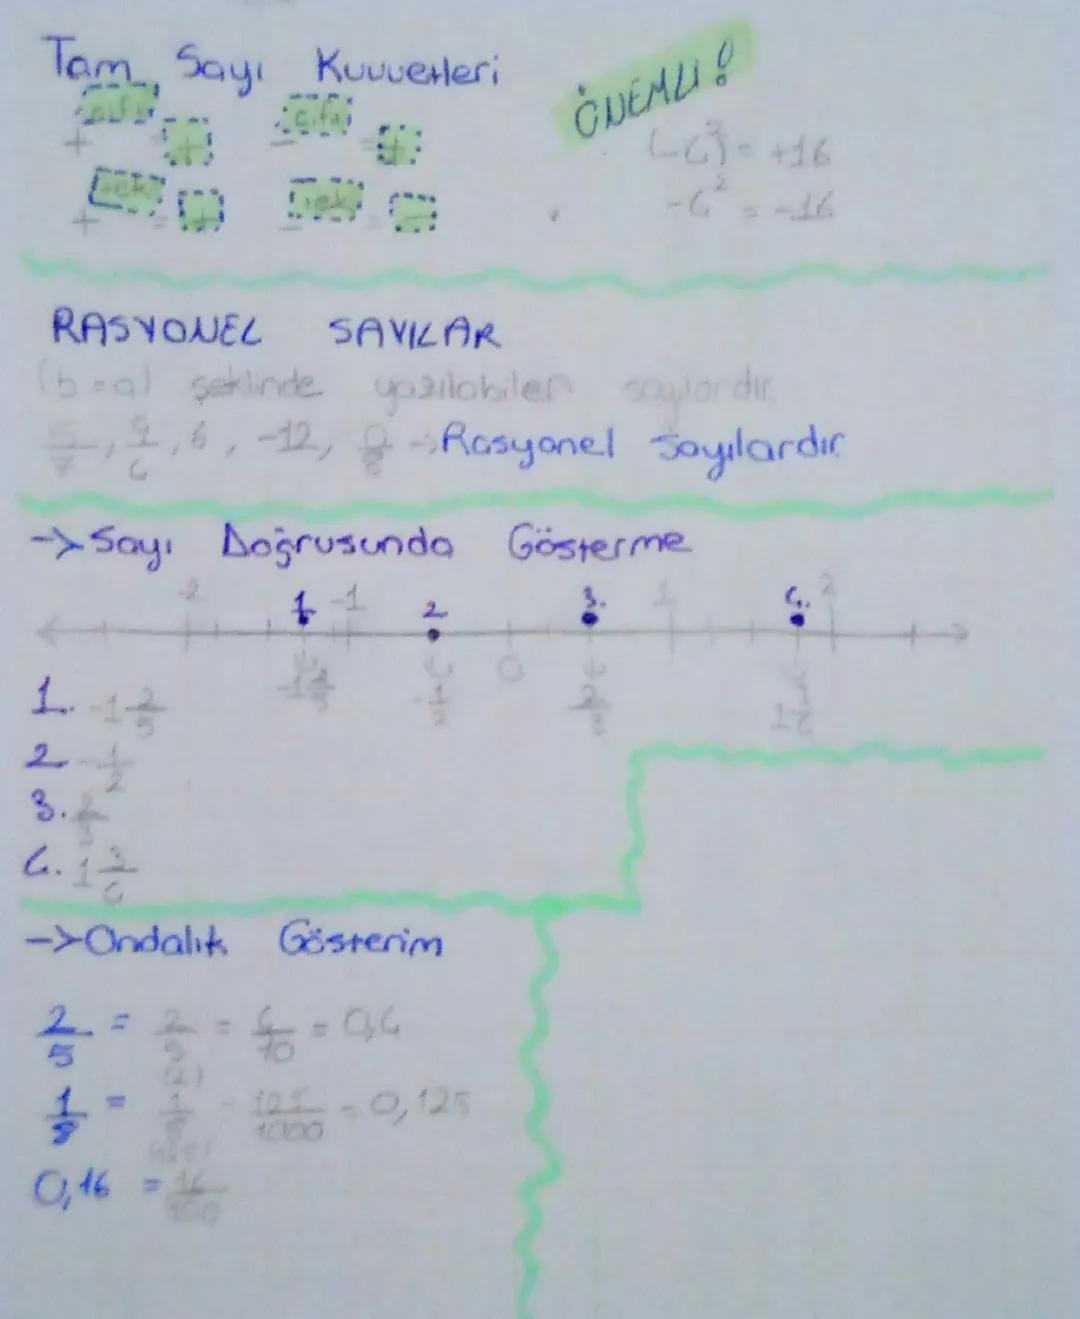 Tam Sayı Kuvvetleri
ÖNEMLİ!
+ çift = + - çift = +
+ tek = + - tek = -
(-4)² = +16
-4² = -16
RASYONEL SAYILAR
(b≠a) şeklinde yazılabilen sayılardır.
9/4, 6, -12, 0/8 -> Rasyonel Sayılardır.
-> Sayı Doğrusunda Gösterme
-2 1 -1 2 3. 1 4. 2
0
1. -1 2/5
2 -1/2
3.
4. 1 3/4
-> Ondalık Gösterim
2/5 = 2/5 = 4/10 = 0,4
(2)
1/8 = 1/8 = 125/1000 = 0,125
0,16 = 16/100